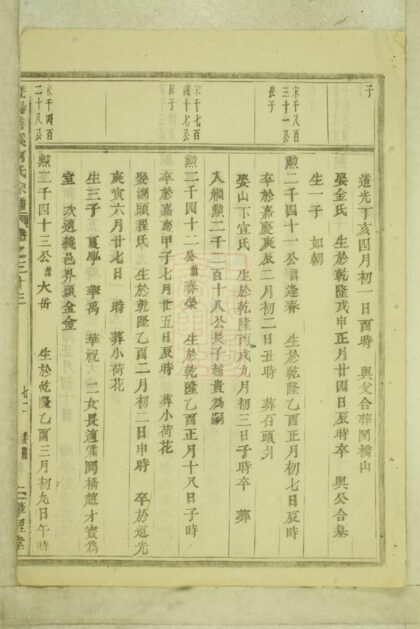 子
道光丁亥四月初一日酉時 與父合葬闕橋山
娶金氏 生於乾隆戊申正月廿四日辰時卒 與公合墓
生一子 如朝
宋千八百
三十一公
長子
勲二千四十一公諱逢春 生於乾隆乙酉正月初七日辰時
卒於嘉慶庚辰二月初二日丑時 葬石頭爿
娶山下宣氏 生於乾隆丙戌九月初三日子時卒 葬
入繼勲二千三百十八公長子越貴為嗣
宋千七百
四十七公
長子
勲二千四十二公諱春榮 生於乾隆乙酉正月十八日子時
卒於嘉慶甲子七月廿五日辰時 葬小荷花
娶湖頭程氏 生於乾隆乙酉二月初二日申時 卒於道光
庚寅六月廿七日 時 葬小荷花
生三子 夏學 華禹 華祝 二女長適闕橋趙才寶為
室 次適義邑界頭金
宋千四百
二十八公
勲二千四十三公諱大岳 生於乾隆乙酉三月初九日午時
氏宗譜